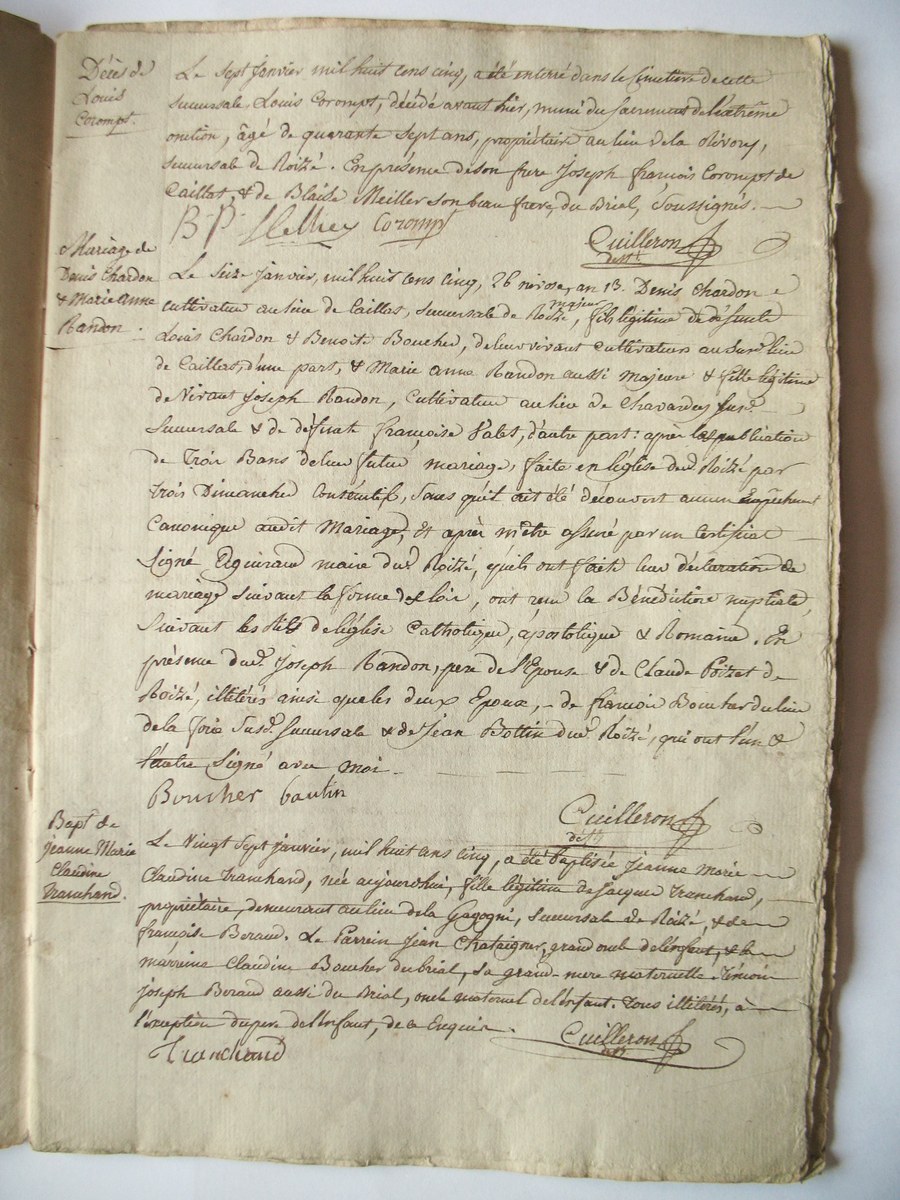 Décès de
Louis
Coromps.
Le sept janvier mil huit cens cinq, a été enterré dans le Cimetière de cette
succursale, Louis Coromps, décédé avant hier, muni du sacrement de l'extrême
onction, âgé de quarante sept ans, propriétaire au lieu de la
succursale de Roizé. En présence de son frere Joseph françois Coromps de
Caillat, & de Blaise Meiller son beau frere, du Briel, Soussignés.
Coromps
Cuilleron
dess.t
Mariage de
Denis Chardon
& Marie Anne
Randon.
Le Seize janvier, mil huit cens cinq, 26 nivose, an 13. Denis Chardon
majeur
cultivateur au lieu de Caillat, succursale de Roizé, fils légitime de défunts
Louis Chardon & Benoite Boucher, de leur vivant cultivateurs au susd. lieu
de Caillat, d'une part, & Marie Anne Randon aussi majeure & fille légitime
de vivant Joseph Randon, Cultivateur au lieu de susd.
Succursale & de défunte françoise d'autre part: après la publication
de Trois Bans de leur futur mariage, faite en l'église dud. Roizé par
trois Dimanches Consécutifs, sans qu'il ait été découvert aucun Empêchement
Canonique audit Mariage, Et après m'être assuré par un Certificat
signé maire dud. Roizé, qu'ils ont fait leur déclaration de
mariage suivant la forme de loi, ont reçu la Bénédiction nuptiale,
suivant les Rits de l'église Catholique, apostolique & Romaine. En
présence dud. Joseph Randon, pere de l'Epouse & de Claude Poizat de
Roizé, illitérés ainsi que les deux Epoux, de françois Boucher du lieu
de la susd. succursale & de Jean Bottin dud. Roizé, qui ont l'un &
l'autre signé avec moi.
Boucher bautin
Cuilleron
dess.t
Bapt. de
Jeanne Marie
Claudine
Tranchand.
Le Vingt Sept janvier, mil huit cens cinq, a été baptisée Jeanne Marie
Claudine Tranchand, née aujourd'hui, fille légitime de Jacques Tranchand,
propriétaire, demeurant au lieu de la Gagogni, succursale de Roizé, & de
françoise Beraud. Le Parrein Jean Chataigner, grand oncle de l'enfant, & la
marreine Claudine Boucher du brial, sa grand-mere maternelle. Témoin
Joseph Beraud aussi du Brial, oncle maternel de l'enfant. Tous illitérés, à
l'exception du pere de l'Enfant, de ce Enquis.
Tranchand
Cuilleron
dess.t